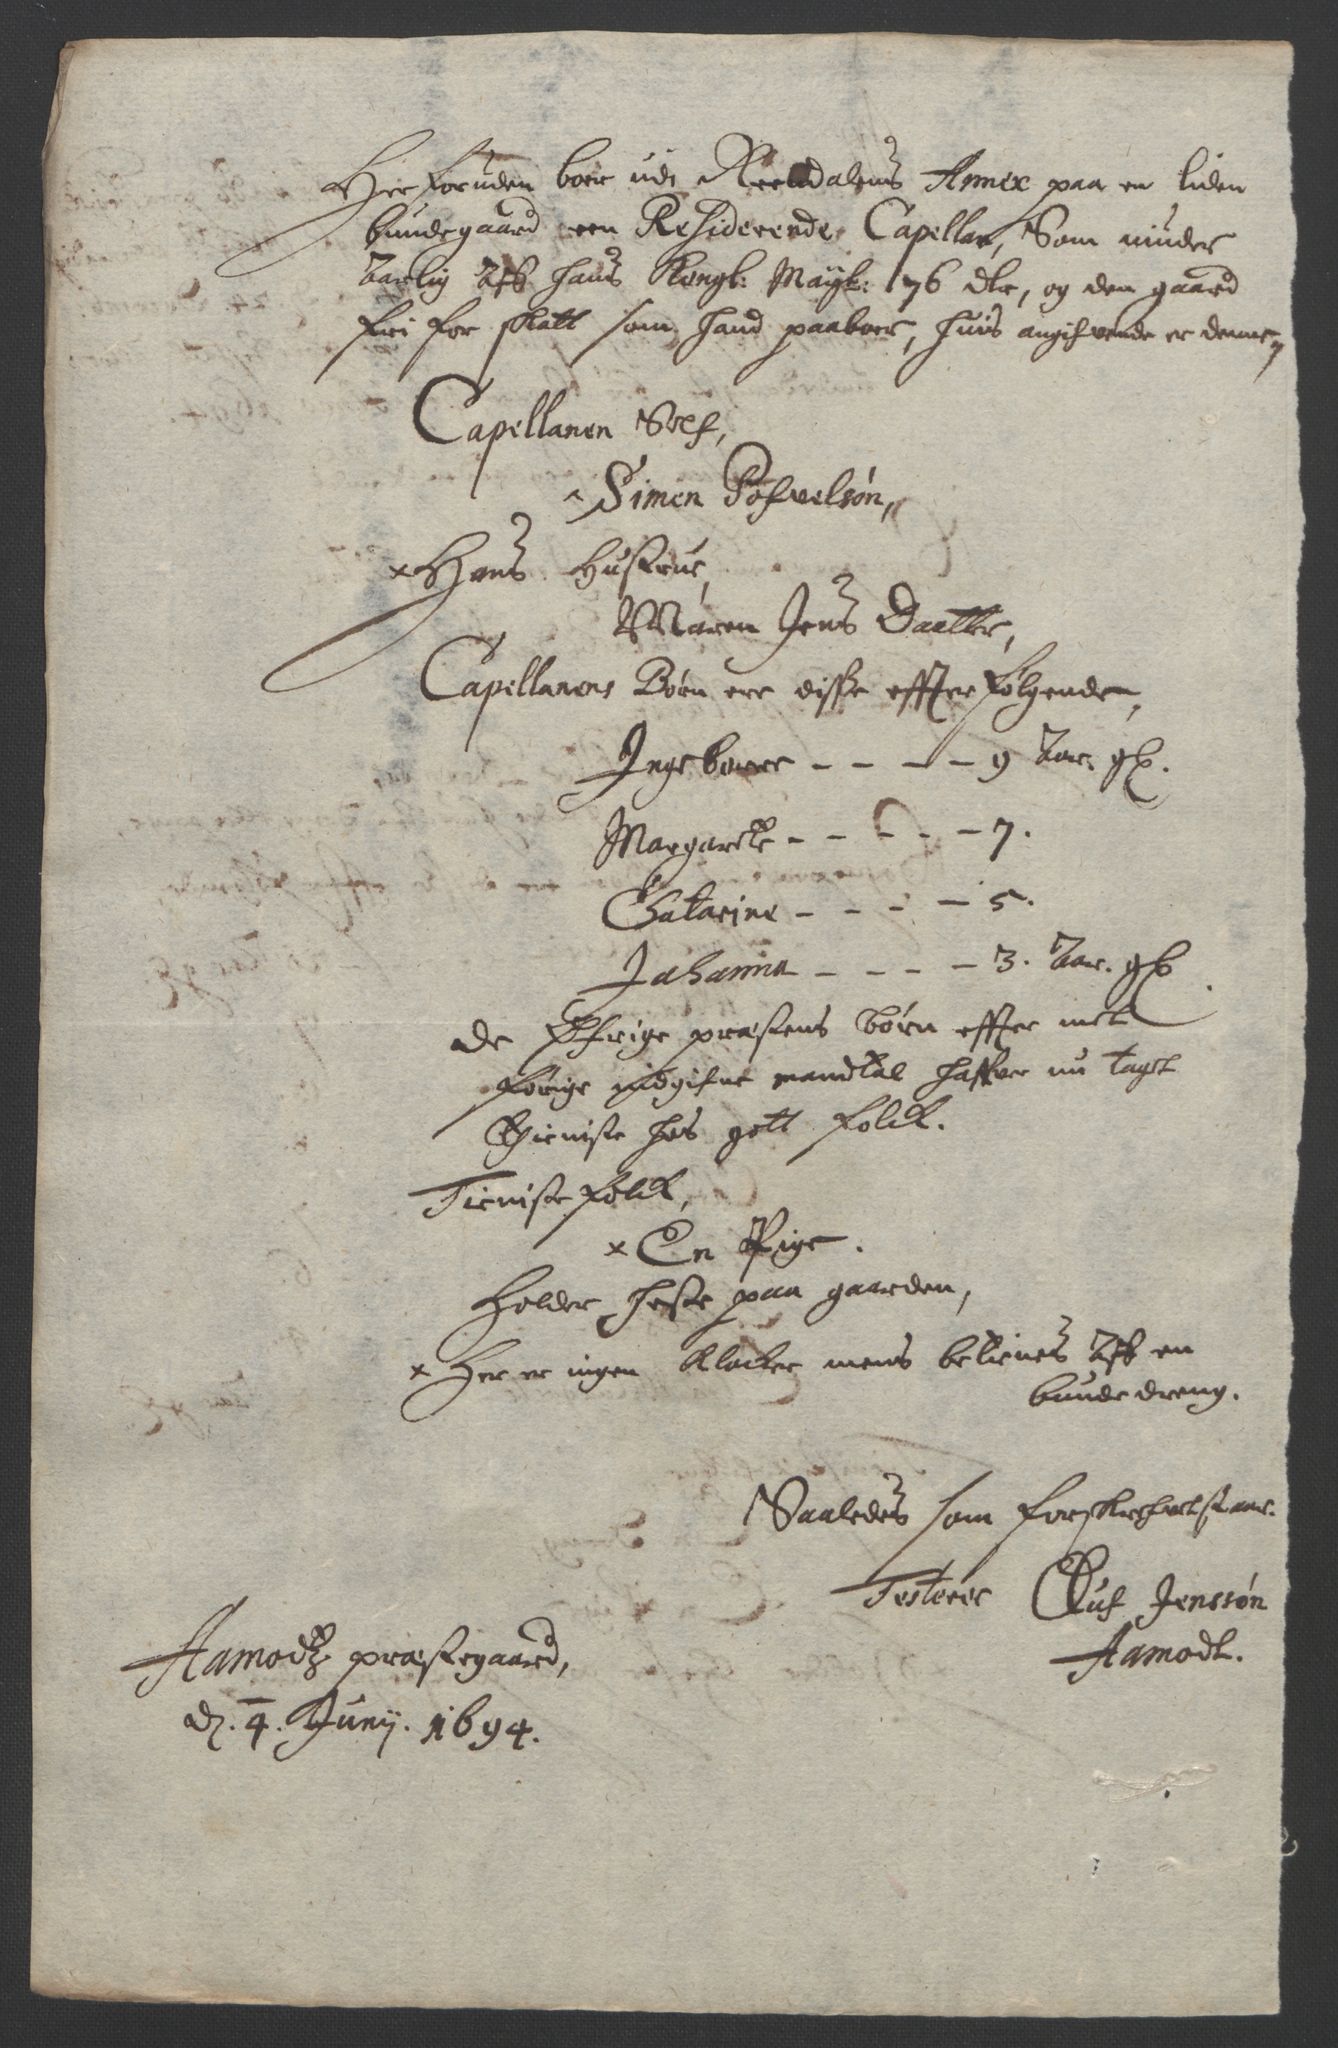 Her foruden boer udi Reendalens Annex paa en liden
bundegaard een Residerende Capellan, Som niuder
Aarlig Aff hans Kongl: Mayt: 76 dlr, og den gaard
fri for skatt som hand paaboer, huis angifvende er denne,
Capellanen Self,
Simen Pofvelsøn,
× Hans Hustrue,
Maren Jens Daatter,
Capellanens Børn ere disse effterfølgende,
Ingeborre - - - - 9 Aar. gl.
Margarete - - - - - 7.
Chatarine - - - - 5.
Johanna - - - - 3. Aar. gl.
de Øfrige præstens børn effter mit
forige udgifne mandtal haffver nu taget
Thieniste hos gott folck.
Tieniste folck,
× En Pige.
Holder heste paa gaarden,
× Her er ingen Klocker mens betienes Aff en
bunde dreng.
Saaledes som forskrefvet staar.
Testerer Oluf Jenssøn
Aamodt.
Aamodtz præstegaard,
d. 4. Junij. 1694.